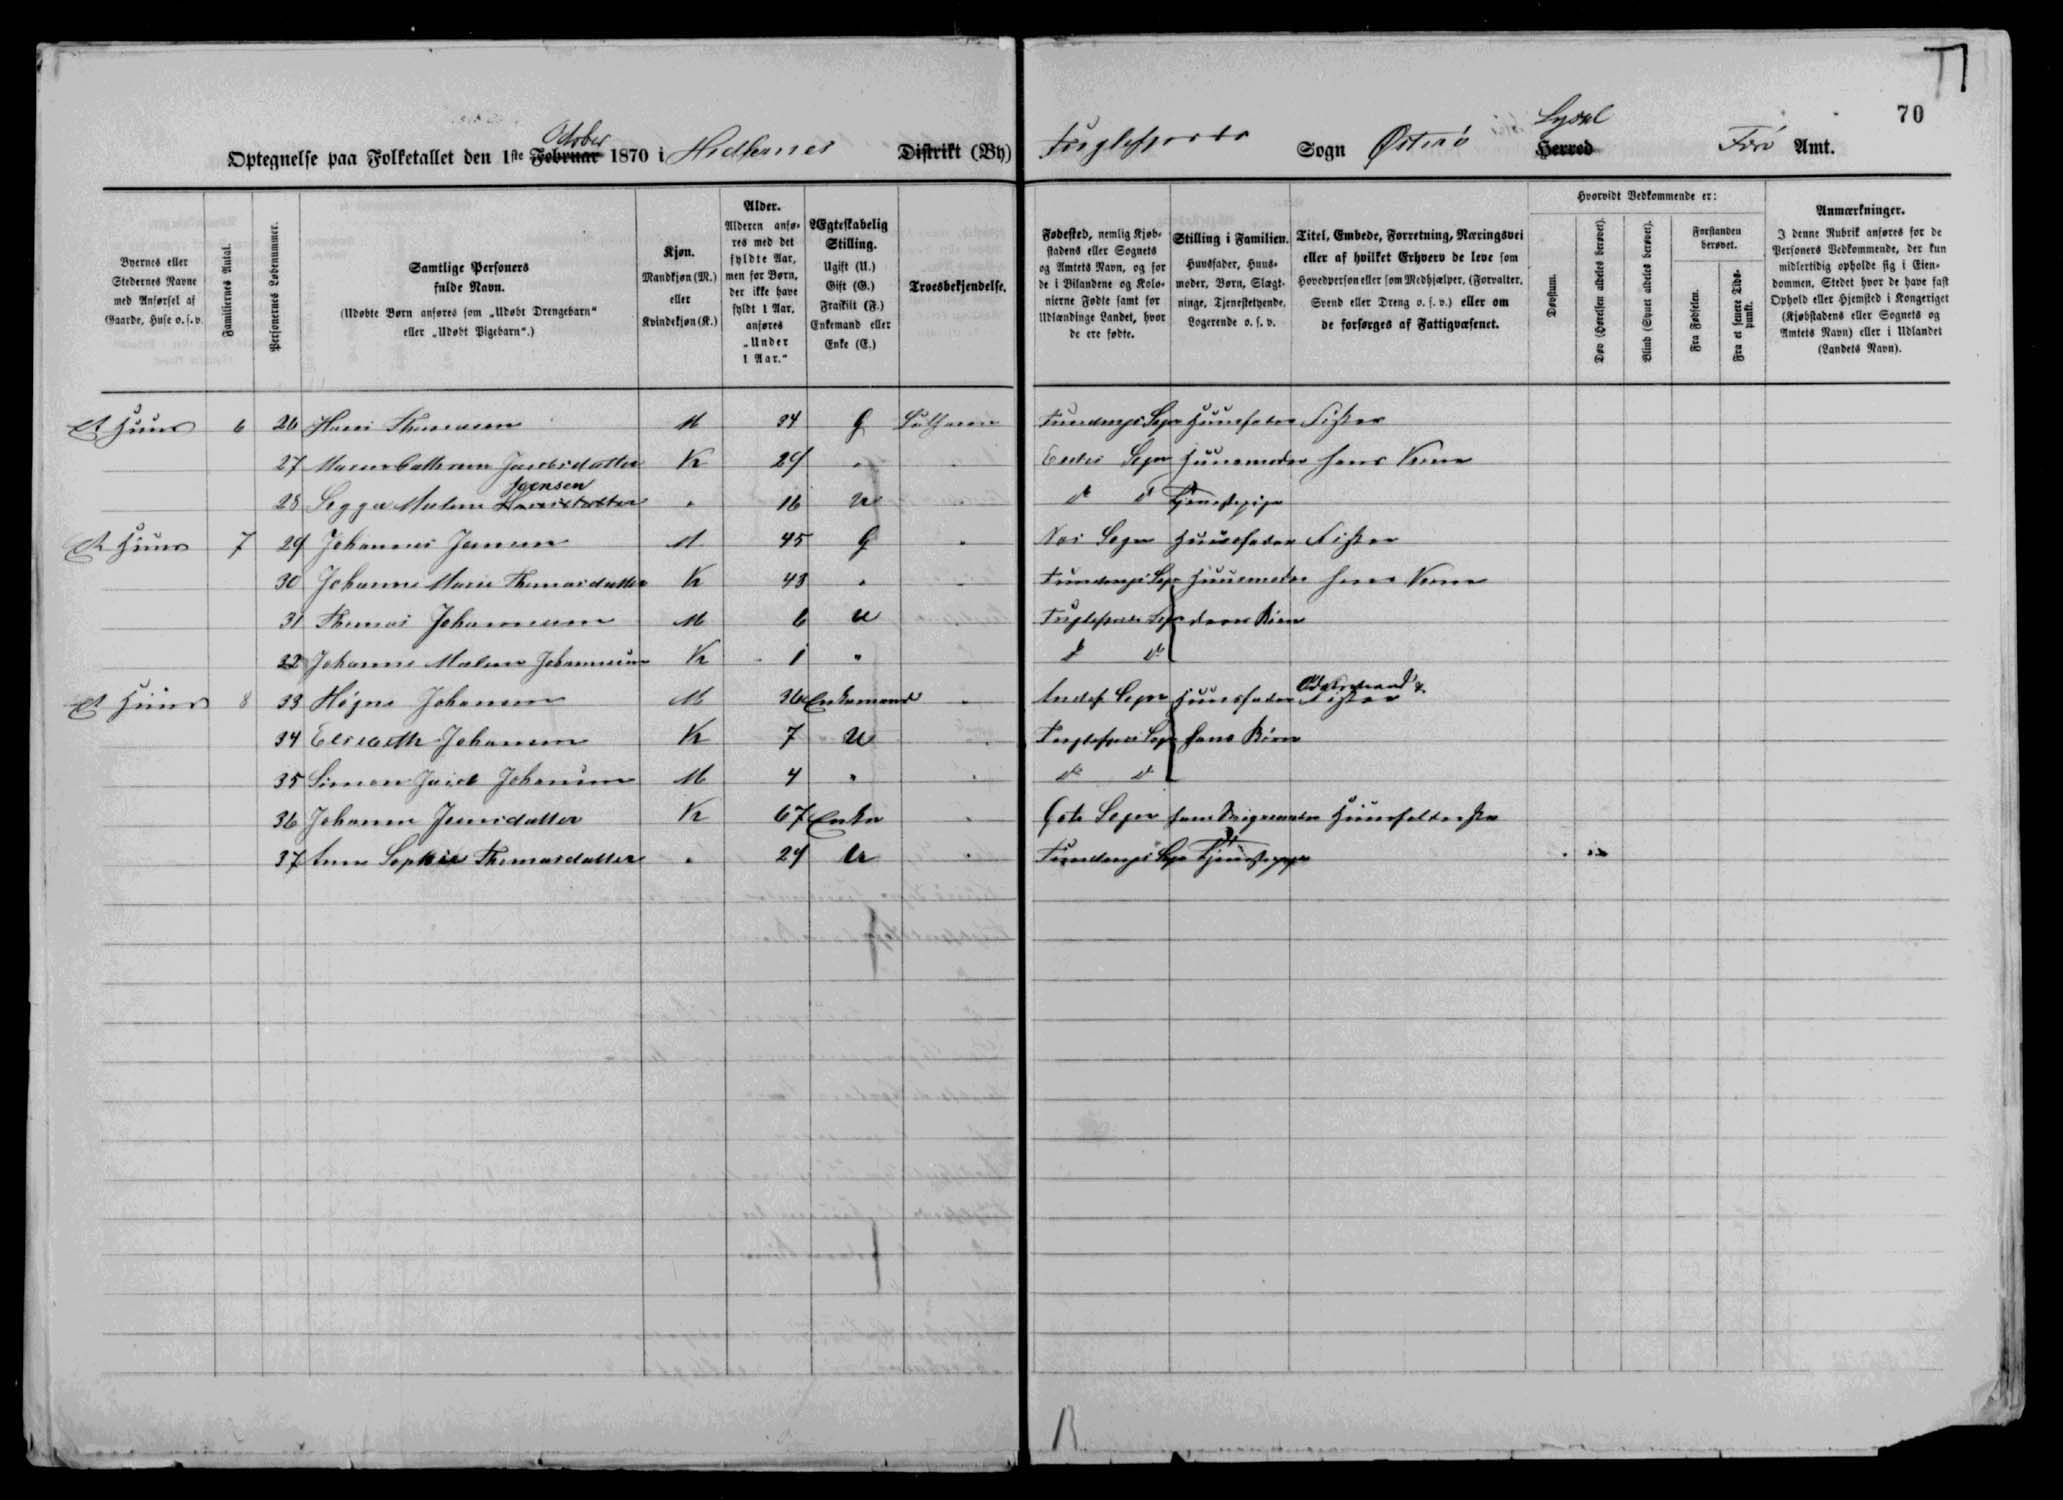 70
Optegnelse paa Folketallet den 1ste Februar October 1870 i Distrikt (By) Fuglefjords Sogn Østerø Herred Syssel Færø Amt.
Byernes eller Stedernes Navne med Anførsel af Gaarde, Huse o. s. v.
Familiernes Antal.
Personernes Løbenummer.
Samtlige Personers fulde Navn.
(Udøbte Børn anføres som „Udøbt Drengebarn“ eller „Udøbt Pigebarn“.)
Kjøn. Mandkjøn (M.) eller Kvindekjøn (K.)
Alder. Alderen anføres med det fyldte Aar, men for Børn, der ikke have fyldt 1 Aar, anføres „Under 1 Aar.“
Ægteskabelig Stilling. Ugift (U.) Gift (G.) Fraskilt (F.) Enkemand eller Enke (E.)
Troesbekjendelse.
Fødested, nemlig Kjøbstadens eller Sognets og Amtets Navn, og for de i Bilandene og Kolonierne Fødte samt for Udlændinge Landet, hvor de ere fødte.
Stilling i Familien. Huusfader, Huusmoder, Børn, Slægtninge, Tjenestetyende, Logerende o. s. v.
Titel, Embede, Forretning, Næringsvei eller af hvilket Erhverv de leve som Hovedperson eller som Medhjælper, (Forvalter, Svend eller Dreng o. s. v.) eller om de forsørges af Fattigvæsenet.
Hvorvidt Vedkommende er:
Døvstum.
Døv (Hørelsen aldeles berøvet).
Blind (Synet aldeles berøvet).
Forstanden berøvet.
Fra Fødselen.
Fra et senere Tidspunkt.
Anmærkninger. I denne Rubrik anføres for de Personers Vedkommende, der kun midlertidig opholde sig i Eiendommen, Stedet hvor de have fast Ophold eller Hjemsted i Kongeriget (Kjøbstadens eller Sognets og Amtets Navn) eller i Udlandet (Landets Navn).
Et Huus 6 26 Hans Thomasen M 34 G Luthersk Fundings Sogn Huusfader Fisker
27 Maren Cathrine Jacobsdatter K 29 " " Eides Sogn Huusmoder hans Kone
28 Malene Joensen " 16 U " do do Tjenestepige
Et Huus 7 29 Johannes Jensen M 45 G " Næs Sogn Huusfader Fisker
30 Johanne Marie Thomasdatter K 43 " " Fundings Sogn Huusmoder hans Kone
31 Thomas Johannesen M 6 U Fuglefjords Sogn deres Børn
32 Johanne Malene Johannesen K 1 " do do
Et Huus 8 33 Høgne Johansen M 36 Enkemand " Andef. Sogn Huusfader Odelsmand & Fisker
34 Elsebeth Johansen K 7 U " Fuglefjords Sogn hans Børn
35 Simon Jacob Johansen M 4 " " do do
36 Johanne Jensdatter K 67 Enke " Gøte Sogn hans Svigermoder
37 Anne Sophie Thomasdatter " 29 U " Fundings Sogn Tjenestepige